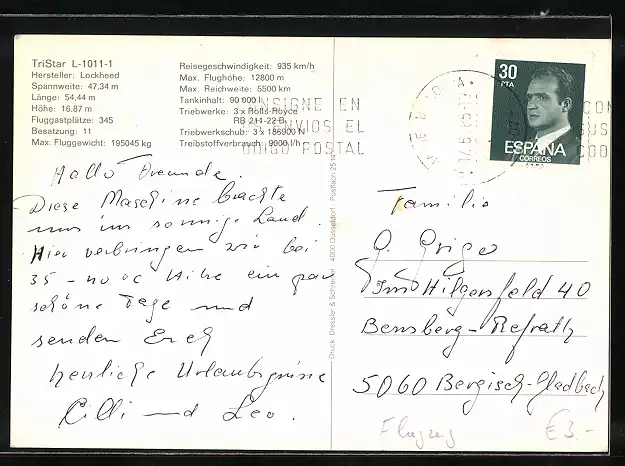 TriStar L-1011-1
Hersteller: Lockheed
Spannweite: 47,34 m
Länge: 54,44 m
Höhe: 16,87 m
Fluggastplätze: 345
Besatzung: 11
Max. Fluggewicht: 195045 kg
Reisegeschwindigkeit: 935 km/h
Max. Flughöhe: 12800 m
Max. Reichweite: 5500 km
Tankinhalt: 90 000 l
Triebwerke: 3 x Rolls-Royce
RB 211-22 B
Triebwerkschub: 3 x 186900 N
Treibstoffverbrauch: 9000 l/h
CONSIGNE EN
ENVIOS EL
CODIGO POSTAL
30
PTA
ESPAÑA
CORREOS
Hallo Freunde.
Diese Maschine brachte
uns ins sonnige Land.
Hier verbringen wir bei
35 - 40 °C Hitze ein paar
schöne Tage und
senden Euch
herzliche Urlaubsgrüsse
Cilli und Leo.
Druck: Dressler & Schreiber · 4000 Düsseldorf · Postfach 2514
Familie
Im Hilgersfeld 40
Bensberg-Refrath
5060 Bergisch-Gladbach
Flugzeug
€ 3.-